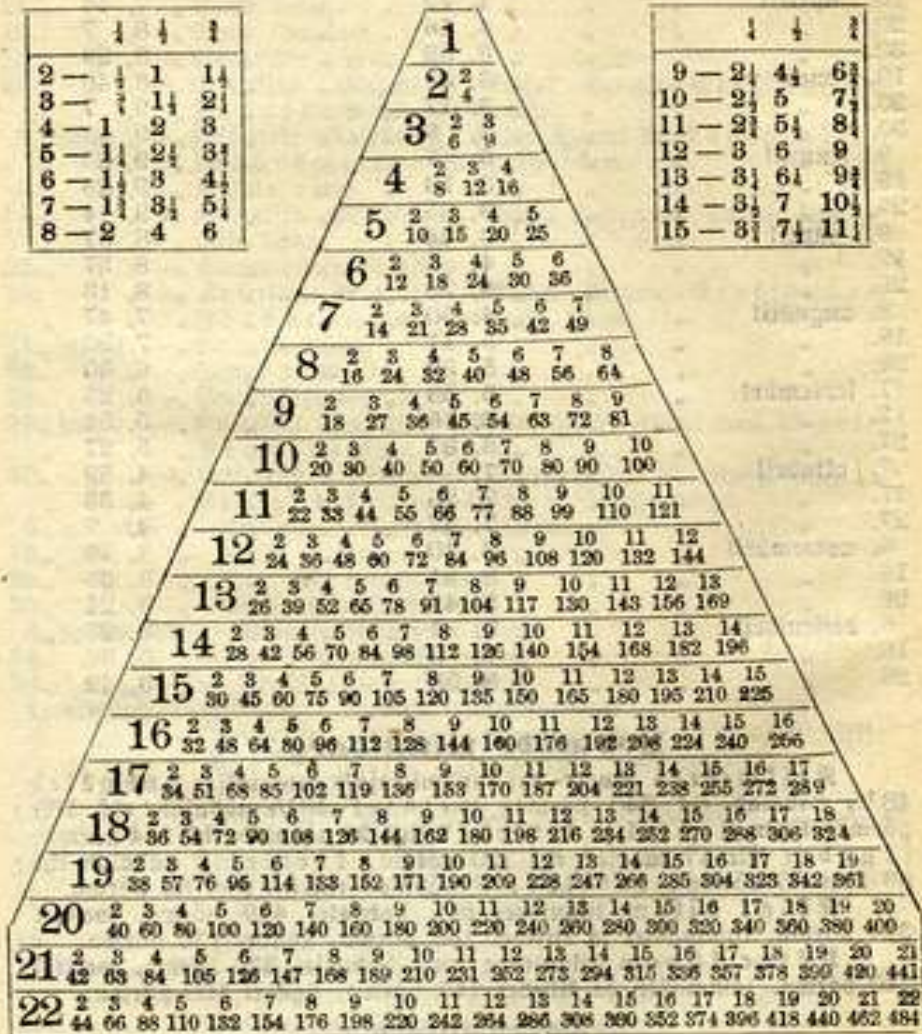 ¼ ½ ¾
2 — ½ 1 1½
3 — ¾ 1½ 2¼
4 — 1 2 3
5 — 1¼ 2½ 3¾
6 — 1½ 3 4½
7 — 1¾ 3½ 5¼
8 — 2 4 6
¼ ½ ¾
9 — 2¼ 4½ 6¾
10 — 2½ 5 7½
11 — 2¾ 5½ 8¼
12 — 3 6 9
13 — 3¼ 6½ 9¾
14 — 3½ 7 10½
15 — 3¾ 7½ 11¼
1
2 2
4
3 2 3
6 9
4 2 3 4
8 12 16
5 2 3 4 5
10 15 20 25
6 2 3 4 5 6
12 18 24 30 36
7 2 3 4 5 6 7
14 21 28 35 42 49
8 2 3 4 5 6 7 8
16 24 32 40 48 56 64
9 2 3 4 5 6 7 8 9
18 27 36 45 54 63 72 81
10 2 3 4 5 6 7 8 9 10
20 30 40 50 60 70 80 90 100
11 2 3 4 5 6 7 8 9 10 11
22 33 44 55 66 77 88 99 110 121
12 2 3 4 5 6 7 8 9 10 11 12
24 36 48 60 72 84 96 108 120 132 144
13 2 3 4 5 6 7 8 9 10 11 12 13
26 39 52 65 78 91 104 117 130 143 156 169
14 2 3 4 5 6 7 8 9 10 11 12 13 14
28 42 56 70 84 98 112 126 140 154 168 182 196
15 2 3 4 5 6 7 8 9 10 11 12 13 14 15
30 45 60 75 90 105 120 135 150 165 180 195 210 225
16 2 3 4 5 6 7 8 9 10 11 12 13 14 15 16
32 48 64 80 96 112 128 144 160 176 192 208 224 240 256
17 2 3 4 5 6 7 8 9 10 11 12 13 14 15 16 17
34 51 68 85 102 119 136 153 170 187 204 221 238 255 272 289
18 2 3 4 5 6 7 8 9 10 11 12 13 14 15 16 17 18
36 54 72 90 108 126 144 162 180 198 216 234 252 270 288 306 324
19 2 3 4 5 6 7 8 9 10 11 12 13 14 15 16 17 18 19
38 57 76 95 114 133 152 171 190 209 228 247 266 285 304 323 342 361
20 2 3 4 5 6 7 8 9 10 11 12 13 14 15 16 17 18 19 20
40 60 80 100 120 140 160 180 200 220 240 260 280 300 320 340 360 380 400
21 2 3 4 5 6 7 8 9 10 11 12 13 14 15 16 17 18 19 20 21
42 63 84 105 126 147 168 189 210 231 252 273 294 315 336 357 378 399 420 441
22 2 3 4 5 6 7 8 9 10 11 12 13 14 15 16 17 18 19 20 21 22
44 66 88 110 132 154 176 198 220 242 264 286 308 330 352 374 396 418 440 462 484